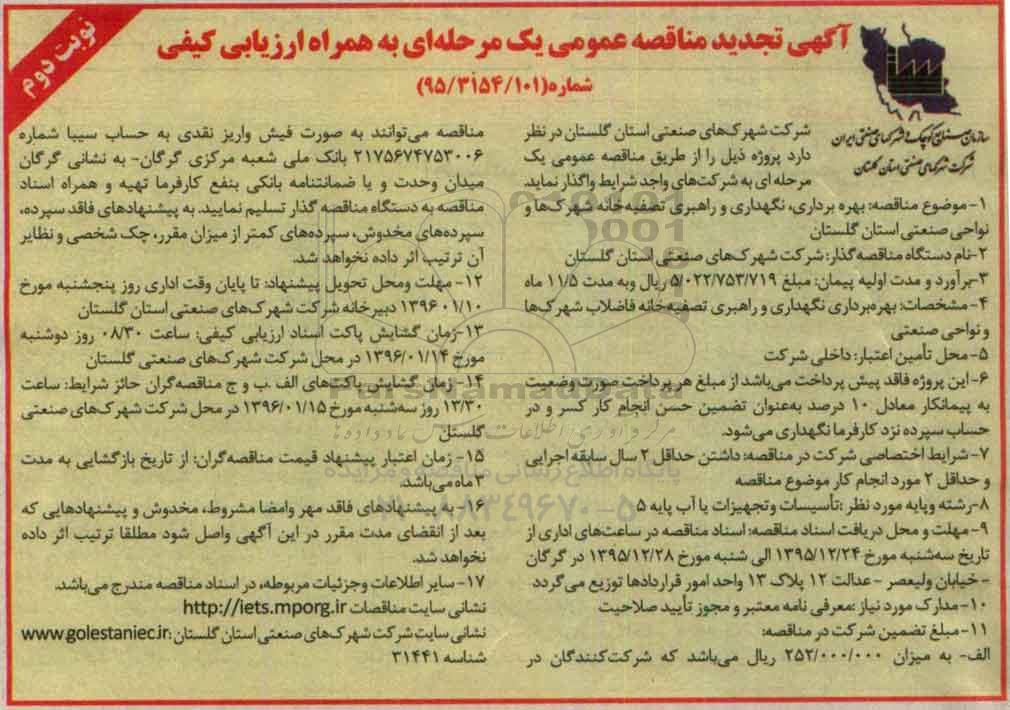 نوبت دوم
آگهی تجدید مناقصه عمومی یک مرحله‌ای به همراه ارزیابی کیفی
شماره(۹۵/۳آ۵۴/۱۰۱)
سازمان صنایع کوچک و شهرکهای صنعتی ایران
شرکت شهرکهای صنعتی استان گلستان
شرکت شهرک‌های صنعتی استان گلستان در نظر
دارد پروژه ذیل را از طریق مناقصه عمومی یک
مرحله ای به شرکت‌های واجد شرایط واگذار نماید.
۱- موضوع مناقصه: بهره برداری، نگهداری و راهبری تصفیه‌خانه شهرک‌ها و
نواحی صنعتی استان گلستان
۲-نام دستگاه مناقصه‌گذار: شرکت شهرک‌های صنعتی استان گلستان
۳-برآورد و مدت اولیه پیمان: مبلغ ۵/۰۲۲/۷۵۳/۷۱۹ ریال وبه مدت ۱۱/۵ ماه
۴- مشخصات: بهره‌برداری نگهداری و راهبری تصفیه‌خانه فاضلاب شهرک‌ها
و نواحی صنعتی
۵- محل تأمین اعتبار: داخلی شرکت
۶- این پروژه فاقد پیش پرداخت می‌باشد از مبلغ هر پرداخت صورت وضعیت
به پیمانکار معادل ۱۰ درصد به‌عنوان تضمین حسن انجام کار کسر و در
حساب سپرده نزد کارفرما نگهداری می‌شود.
۷- شرایط اختصاصی شرکت در مناقصه: داشتن حداقل ۲ سال سابقه اجرایی
و حداقل ۲ مورد انجام کار موضوع مناقصه
۸-رشته وپایه مورد نظر :تأسیسات وتجهیزات یا آب پایه ۵
۹- مهلت و محل دریافت اسناد مناقصه: اسناد مناقصه در ساعت‌های اداری از
تاریخ سه‌شنبه مورخ ۱۳۹۵/۱۲/۲۴ الی شنبه مورخ ۱۳۹۵/۱۲/۲۸ در گرگان
- خیابان ولیعصر - عدالت ۱۲ پلاک ۱۳ واحد امور قراردادها توزیع می گردد
۱۰- مدارک مورد نیاز :معرفی نامه معتبر و مجوز تأیید صلاحیت
۱۱- مبلغ تضمین شرکت در مناقصه:
الف- به میزان ۲۵۲/۰۰۰/۰۰۰ ریال می‌باشد که شرکت‌کنندگان در
مناقصه می‌توانند به صورت فیش واریز نقدی به حساب سیبا شماره
۲۱۷۵۶۷۴۷۵۳۰۰۶ بانک ملی شعبه مرکزی گرگان- به نشانی گرگان
میدان وحدت و یا ضمانتنامه بانکی بنفع کارفرما تهیه و همراه اسناد
مناقصه به دستگاه مناقصه گذار تسلیم نمایید. به پیشنهادهای فاقد سپرده،
سپرده‌های مخدوش، سپرده‌های کمتر از میزان مقرر، چک شخصی و نظایر
آن ترتیب اثر داده نخواهد شد.
۱۲- مهلت ومحل تحویل پیشنهاد: تا پایان وقت اداری روز پنجشنبه مورخ
۱۳۹۶۰۱/۱۰ دبیرخانه شرکت شهرک‌های صنعتی استان گلستان
۱۳-زمان گشایش پاکت اسناد ارزیابی کیفی: ساعت ۰۸/۳۰ روز دوشنبه
مورخ ۱۳۹۶/۰۱/۱۴ در محل شرکت شهرک‌های صنعتی گلستان
۱۴- زمان گشایش پاکت‌های الف .ب و ج مناقصه‌گران حائز شرایط: ساعت
۱۳/۳۰ روز سه‌شنبه مورخ ۱۳۹۶/۰۱/۱۵ در محل شرکت شهرک‌های صنعتی
گلستان
۱۵- زمان اعتبار پیشنهاد قیمت مناقصه‌گران: از تاریخ بازگشایی به مدت
۳ ماه می‌باشد.
۱۶- به پیشنهادهای فاقد مهر وامضا مشروط، مخدوش و پیشنهادهایی که
بعد از انقضای مدت مقرر در این آگهی واصل شود مطلقا ترتیب اثر داده
نخواهد شد.
۱۷- سایر اطلاعات وجزئیات مربوطه، در اسناد مناقصه مندرج می‌باشد.
نشانی سایت مناقصات http://iets.mporg.ir
نشانی سایت شرکت شهرک‌های صنعتی استان گلستان: www.golestaniec.ir
شناسه ۳۱۴۴۱
ParsNamadData
پایگاه اطلاع رسانی مناقصه و مزایده
۰۲۱-۸۸۳۴۹۶۷۰-۵